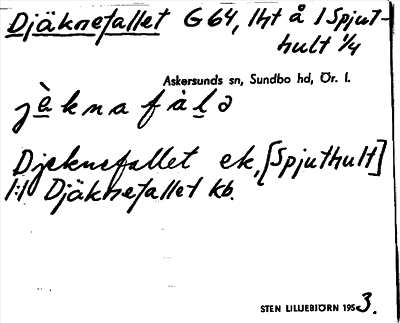 Djäknefallet G64, lht å 1 Spjut-
hult 1/4
Askersunds sn, Sundbo hd, Ör. l.
jèknafàlə
Djeknefallet ek, [Spjuthult]
1:1 Djäknefallet kb.
STEN LILLIEBJÖRN 1953.